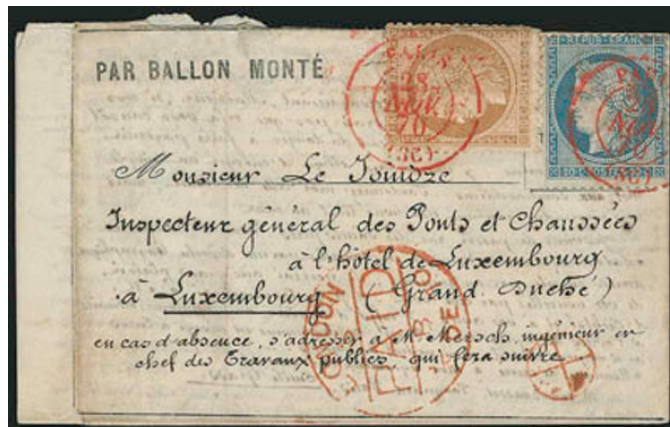 PAR BALLON MONTÉ
REPUB FRANC
PARIS
28
NOV.
70
(SC)
28
NOV.
70
(SC)
Monsieur Le Joindre
Inspecteur général des Ponts et Chaussées
à l'hôtel de Luxembourg
à Luxembourg (Grand Duché)
en cas d'absence, s'adresser à M. Mersch, ingénieur en
chef des Travaux publics, qui fera suivre.
LONDON
PAID
DE